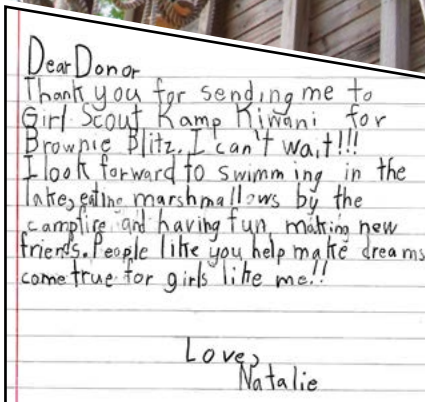 Dear Donor
Thank you for sending me to
Girl Scout Kamp Kiwani for
Brownie Blitz. I can't wait!!!
I look forward to swimming in the
lake, eating marshmallows by the
campfire and having fun making new
friends. People like you help make dreams
come true for girls like me!!
Love,
Natalie